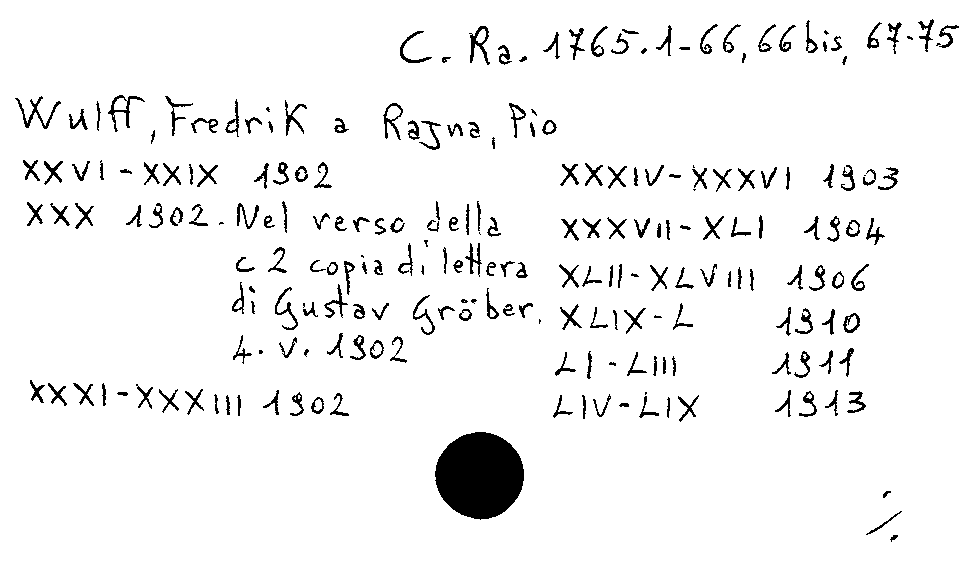 C. Ra. 1765.1-66, 66 bis, 67-75
Wulff, Fredrik a Rajna, Pio
XXVI-XXIX 1902
XXX 1902. Nel verso della
c 2 copia di lettera
di Gustav Gröber.
4. V. 1902
XXXI-XXXIII 1902
XXXIV-XXXVI 1903
XXXVII-XLI 1904
XLII-XLVIII 1906
XLIX-L 1910
LI-LIII 1911
LIV-LIX 1913
./.